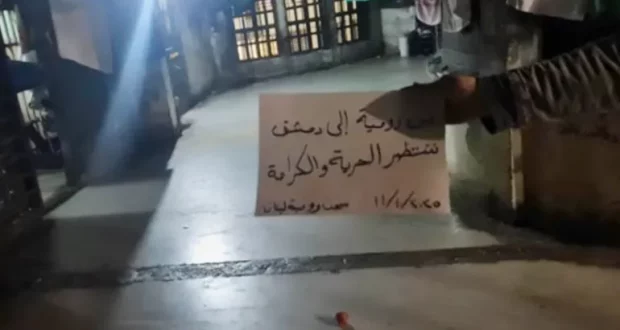 من رومية إلى دمشق
ننتظر الحرية والكرامة
سجن رومية لبنان ١١/١/٢٠٢٥